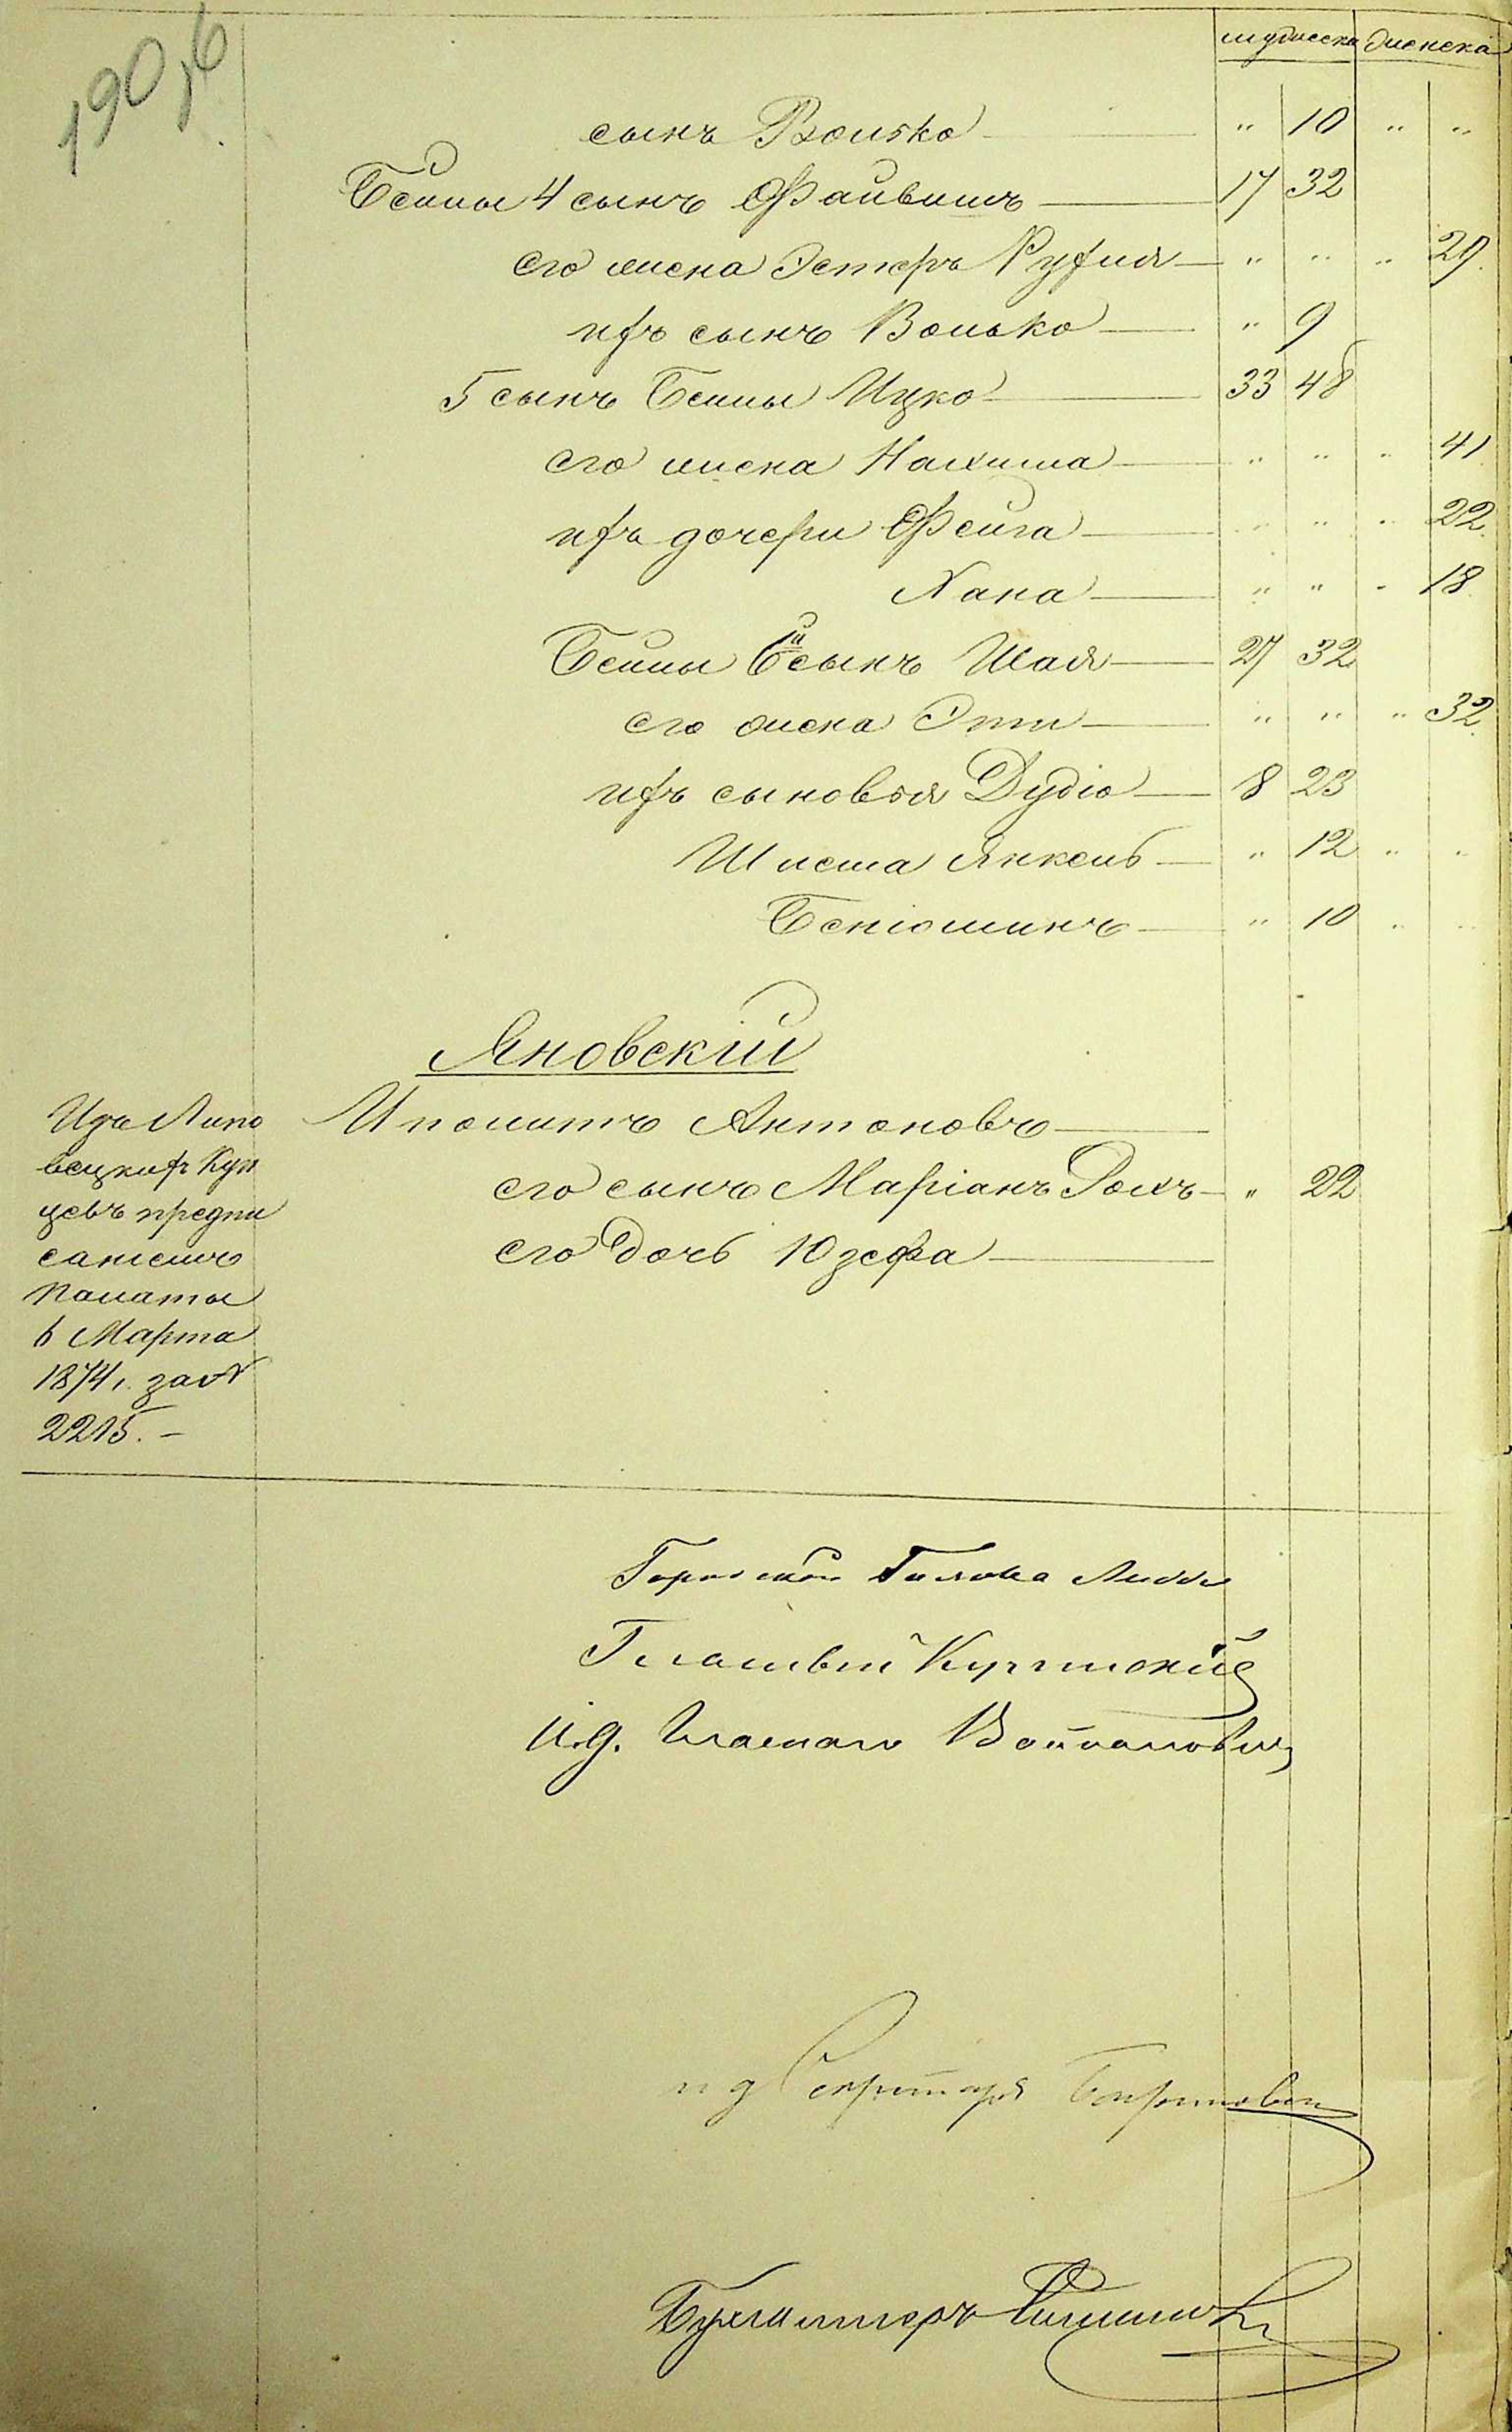 190,б
мужеска женска
сынъ Волько " 10 " "
Бейлы 4 сынъ Файвишъ 17 32
его жена Эстеръ Рухля " " " 29.
ихъ сынъ Волько " 9
5 сынъ Бейлы Ицко 33 48
его жена Нахима " " " 41
ихъ дочери Фейга " " " 22.
Хана " " " 18
Бейлы 6й сынъ Шая 27 32
его жена Эти " " " 32.
ихъ сыновья Дудіо 8 23
Шлема Янкель " 12 " "
Беніоминъ " 10 " "
Яновскій
Иполитъ Антоновъ
его сынъ Маріанъ Рохъ " 22
его дочь Юзефа
Изъ Липо
вецкихъ Куп
цевъ предпи
саніемъ
Палаты
6 Марта
1874 г. за №
2215. –
Городской Голова
Гласный
И.д. Гласнаго
и д Секретаря
Бухгалтеръ